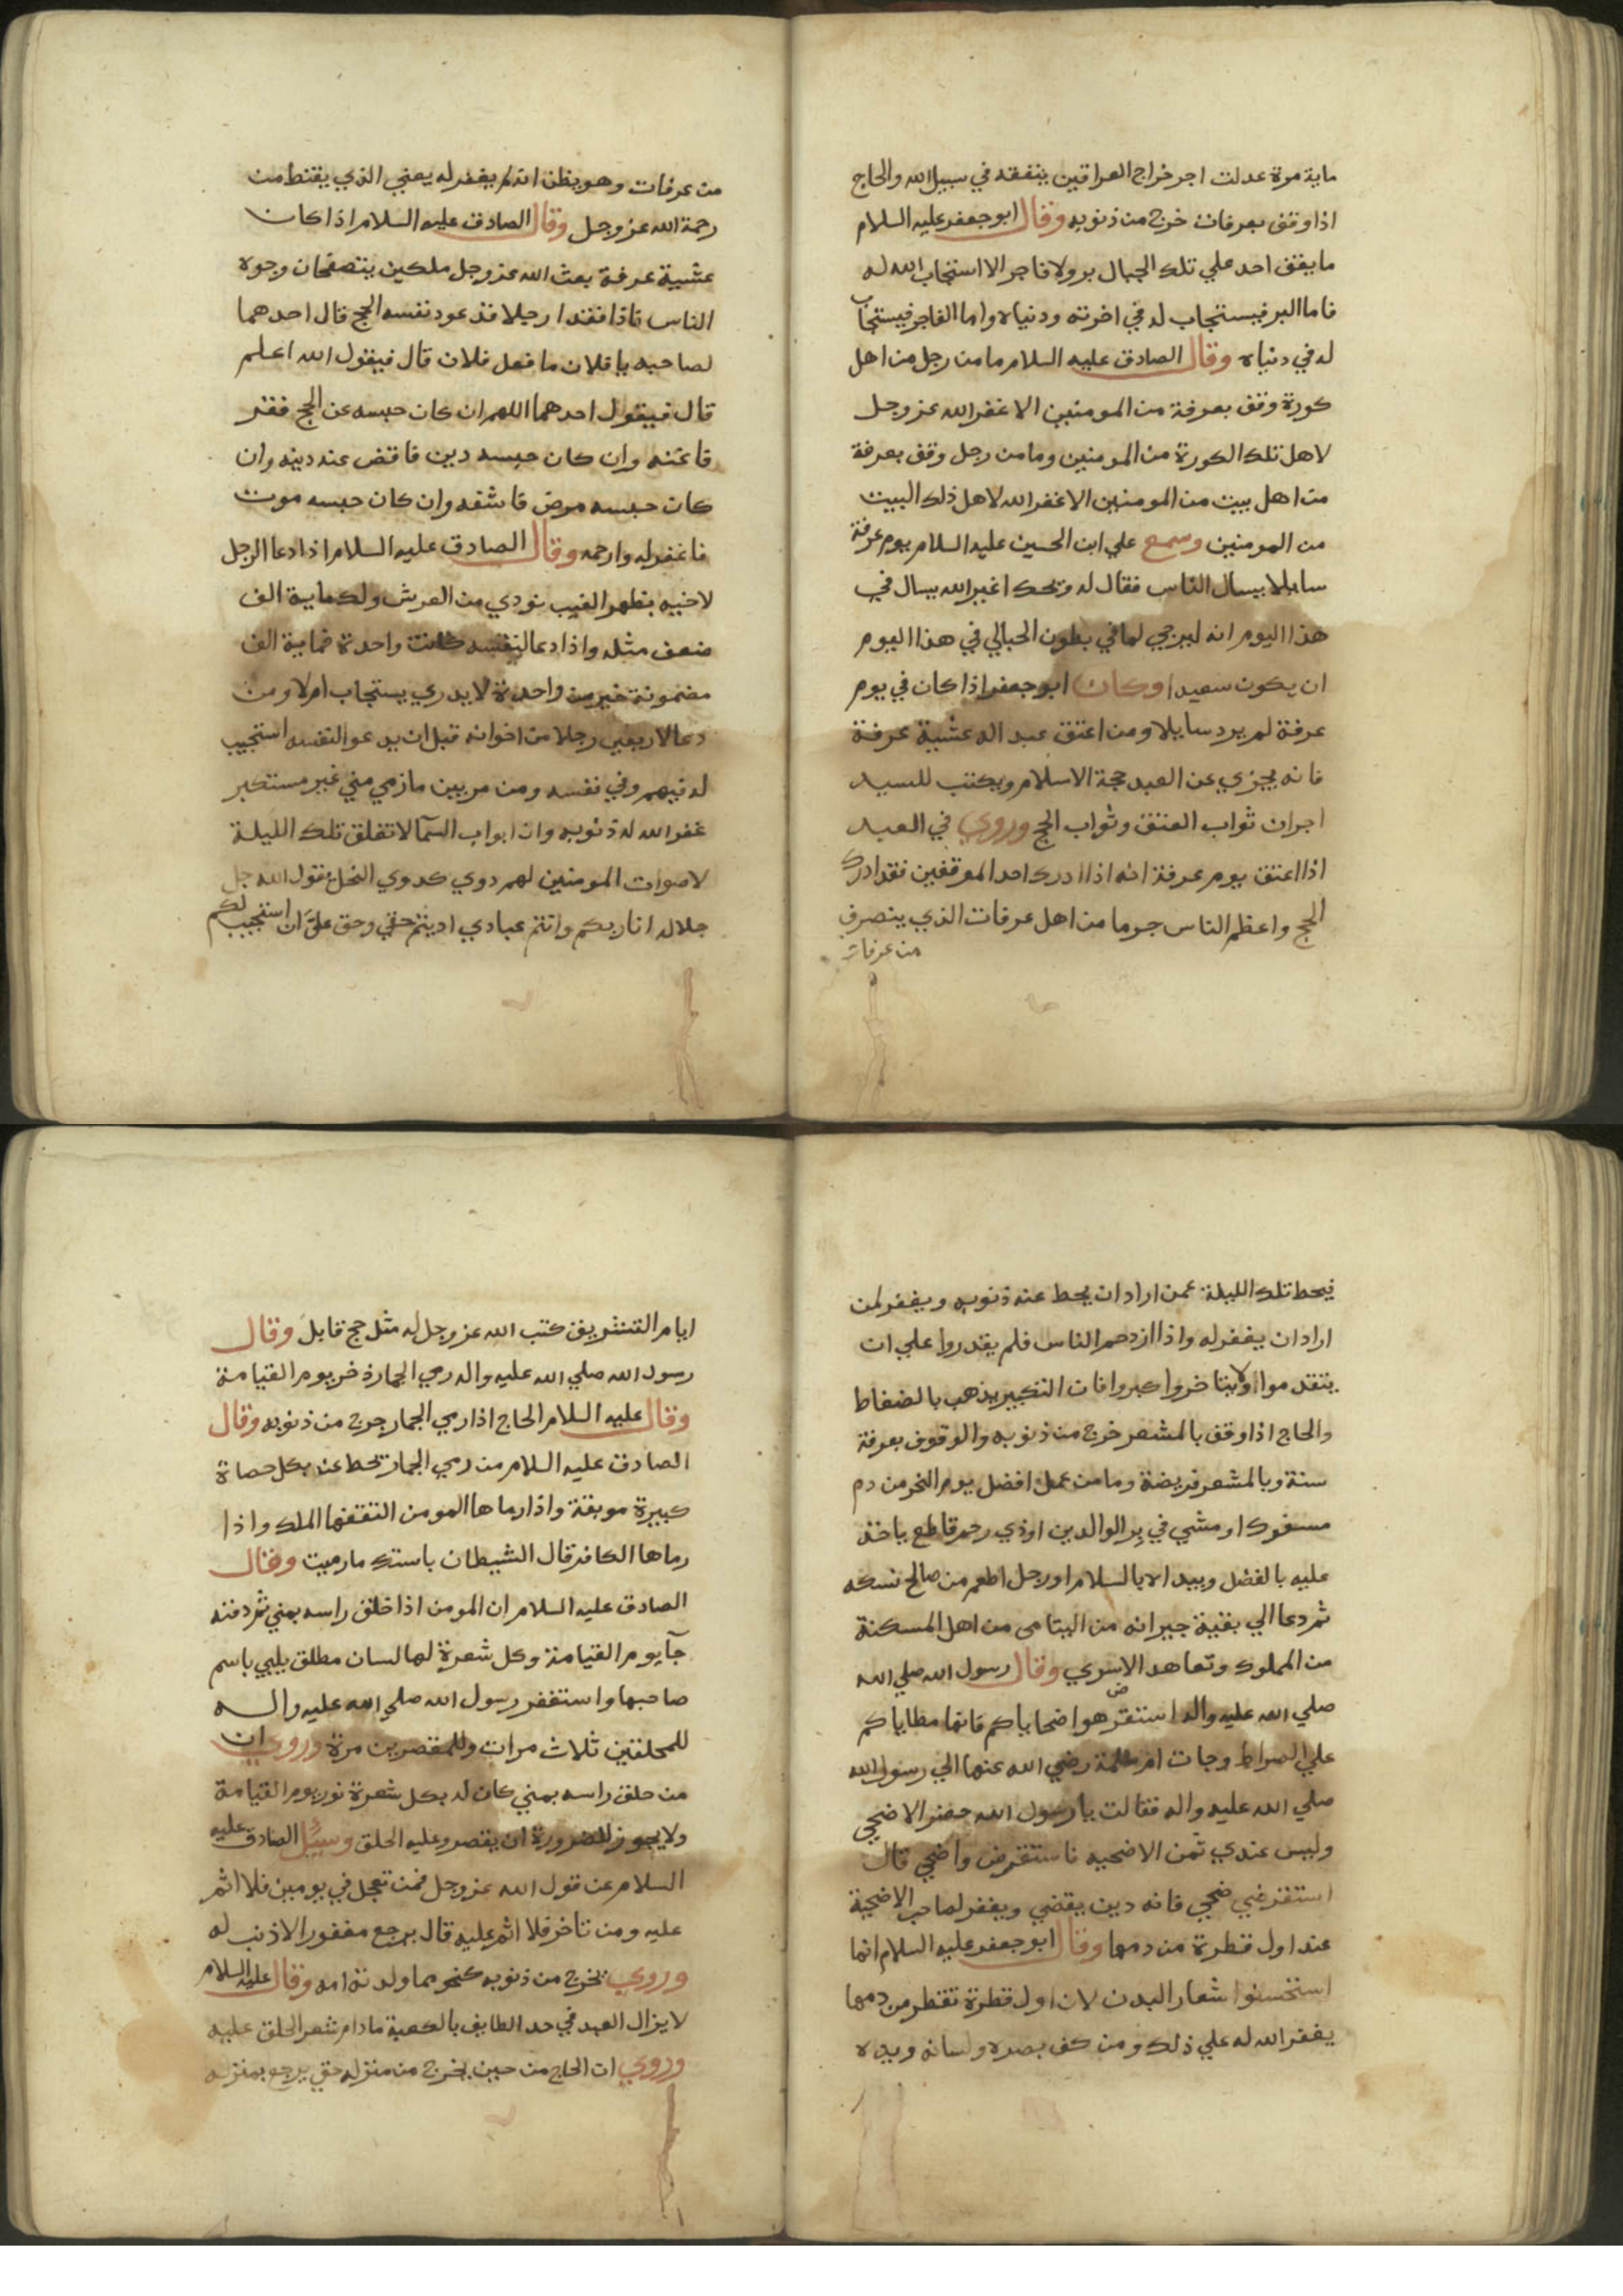 ماية مرة عدلت اجر خراج العراقين ينفقه في سبيل الله والحاج
اذا وقف بعرفات خرج من ذنوبه وقال ابو جعفر عليه السلام
ما يقف احد علي تلك الجبال بر ولا فاجر الا استجاب الله له
فاما البر فيستجاب له في اخرته ودنياه واما الفاجر فيستجاب
له في دنياه وقال الصادق عليه السلام ما من رجل من اهل
كورة وقف بعرفة من المومنين الا غفر الله عز وجل
لاهل تلك الكورة من المومنين وما من رجل وقف بعرفة
من اهل بيت من المومنين الا غفر الله لاهل ذلك البيت
من المومنين وسمع علي ابن الحسين عليه السلام يوم عرفة
سايلا يسال الناس فقال له ويحك اغير الله يسال في
هذا اليوم انه ليرجي لما في بطون الحبالي في هذا اليوم
ان يكون سعيدا وكان ابو جعفر اذا كان في يوم
عرفة لم يرد سايلا ومن اعتق عبد اله عشية عرفة
فانه يجزي عن العبد حجة الاسلام ويكتب للسيد
اجران ثواب العتق وثواب الحج وروي في العبد
اذا اعتق يوم عرفة انه اذا ادرك احد الموقفين فقد ادرك
الحج واعظم الناس جرما من اهل عرفات الذي ينصرف
من عرفات
من عرفات وهو يظن انه لم يغفر له يعني الذي يقنط من
رحمة الله عز وجل وقال الصادق عليه السلام اذا كان
عشية عرفة بعث الله عز وجل ملكين يتصفحان وجوه
الناس فاذا فقدا رجلا قد عود نفسه الحج قال احدهما
لصاحبه يا فلان ما فعل فلان قال فيقول الله اعلم
قال فيقول احدهما اللهم ان كان حبسه عن الحج فقر
فاغنه وان كان حبسه دين فاقض عنه دينه وان
كان حبسه مرض فاشفه وان كان حبسه موت
فاغفر له وارحمه وقال الصادق عليه السلام اذا دعا الرجل
لاخيه بظهر الغيب نودي من العرش ولك ماية الف
ضعف مثله واذا دعا لنفسه كانت واحدة فماية الف
مضمونة خير من واحدة لا يدري يستجاب ام لا ومن
دعا لاربعين رجلا من اخوانه قبل ان يدعو لنفسه استجيب
له فيهم وفي نفسه ومن مر بين مازمي مني غير مستكبر
غفر الله له ذنوبه وان ابواب السمآ لا تغلق تلك الليلة
لاصوات المومنين لهم دوي كدوي النحل يقول الله جل
جلاله انا ربكم وانتم عبادي اديتم حقي وحق علي ان استجيب لكم
فيحط تلك الليلة عمن اراد ان يحط عنه ذنوبه ويغفر لمن
اراد ان يغفر له واذا ازدحم الناس فلم يقدروا علي ان
يتقدموا ولا يتاخروا كبروا فان التكبير يذهب بالضغاط
والحاج اذا وقف بالمشعر خرج من ذنوبه والوقوف بعرفة
سنة وبالمشعر فريضة وما من عمل افضل يوم النحر من دم
مسفوك او مشي في بر الوالدين او ذي رحم قاطع ياخذ
عليه بالفضل ويبداه بالسلام او رجل اطعم من صالح نسكه
ثم دعا الي بقية جيرانه من اليتامى من اهل المسكنة
من المملوك وتعاهد الاسري وقال رسول الله صلي الله
صلي الله عليه واله استفرهوا ضحاياكم فانها مطاياكم
علي الصراط وجات ام سلمة رضي الله عنها الي رسول الله
صلي الله عليه واله فقالت يا رسول الله حضر الاضحي
وليس عندي ثمن الاضحيه فاستقرض واضحي قال
استقرضي ضحي فانه دين يقضي ويغفر لصاحب الاضحية
عند اول قطرة من دمها وقال ابو جعفر عليه السلام انما
استحسنوا شعار البدن لان اول قطرة تقطر من دمها
يغفر الله له علي ذلك ومن كف بصره ولسانه ويده
ايام التشريق كتب الله عز وجل له مثل حج قابل وقال
رسول الله صلي الله عليه واله رمي الجمار ذخر يوم القيامة
وقال عليه السلام الحاج اذا رمي الجمار خرج من ذنوبه وقال
الصادق عليه السلام من رمي الجمار تحط عنه بكل حصاة
كبيرة موبقة واذا رماها المومن التقفها الملك واذا
رماها الكافر قال الشيطان باستك ما رميت وقال
الصادق عليه السلام ان المومن اذا حلق راسه بمني ثم دفنه
جآ يوم القيامة وكل شعرة لها لسان مطلق يلبي باسم
صاحبها واستغفر رسول الله صلي الله عليه واله
للمحلقين ثلاث مرات وللمقصرين مرة وروي ان
من حلق راسه بمني كان له بكل شعرة نور يوم القيامة
ولا يجوز للضرورة ان يقصر وعليه الحلق وسئل الصادق عليه
السلام عن قول الله عز وجل فمن تعجل في يومين فلا اثم
عليه ومن تاخر فلا اثم عليه قال يرجع مغفورا لا ذنب له
وروي يخرج من ذنوبه كنحو مما ولدته امه وقال عليه السلام
لا يزال العبد في حد الطايف بالكعبة ما دام شعر الحلق عليه
وروي ان الحاج من حين يخرج من منزله حتي يرجع بمنزله